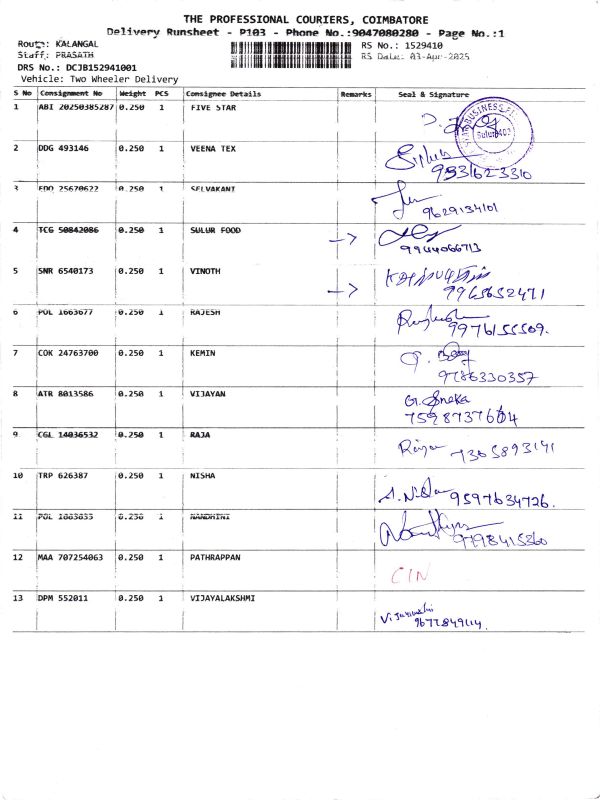 THE PROFESSIONAL COURIERS, COIMBATORE
Delivery Runsheet - P103 - Phone No.:9047080280 - Page No.:1
Route: KALANGAL RS No.: 1529410
Staff: PRASATH RS Date: 03-Apr-2025
DRS No.: DCJB152941001
Vehicle: Two Wheeler Delivery
S No Consignment No Weight PCS Consignee Details Remarks Seal & Signature
1 ABI 20250385287 0.250 1 FIVE STAR
2 DDG 493146 0.250 1 VEENA TEX
9531623310
3 EDD 25670622 0.250 1 SELVAKANI
9629134101
4 TCG 50842086 0.250 1 SULUR FOOD
9944066713
5 SNR 6540173 0.250 1 VINOTH
9965652471
6 POL 1663677 0.250 1 RAJESH
9976155509.
7 COK 24763700 0.250 1 KEMIN
9786330357
8 ATR 8013586 0.250 1 VIJAYAN G. Sneka
7598737604
9 CGL 14036532 0.250 1 RAJA
7305893141
10 TRP 626387 0.250 1 NISHA
9597634726.
11 POL 0.250 1 NANDHINI
9798415360
12 MAA 707254063 0.250 1 PATHRAPPAN CIN
13 DPM 552011 0.250 1 VIJAYALAKSHMI
9677849114.